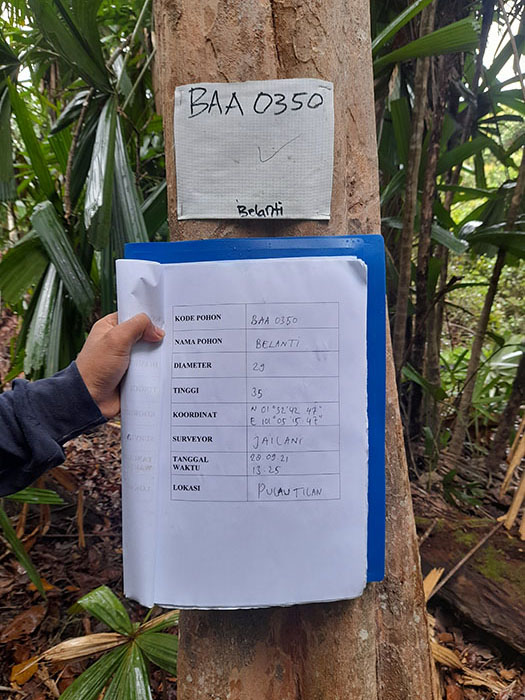 BAA 0350
Belanti
KODE POHON BAA 0350
NAMA POHON BELANTI
DIAMETER 29
TINGGI 35
KOORDINAT N 01°32'42 47"
E 101°05'15 47"
SURVEYOR JAILANI
TANGGAL 28.09.21
WAKTU 13.25
LOKASI PULAU TILAN